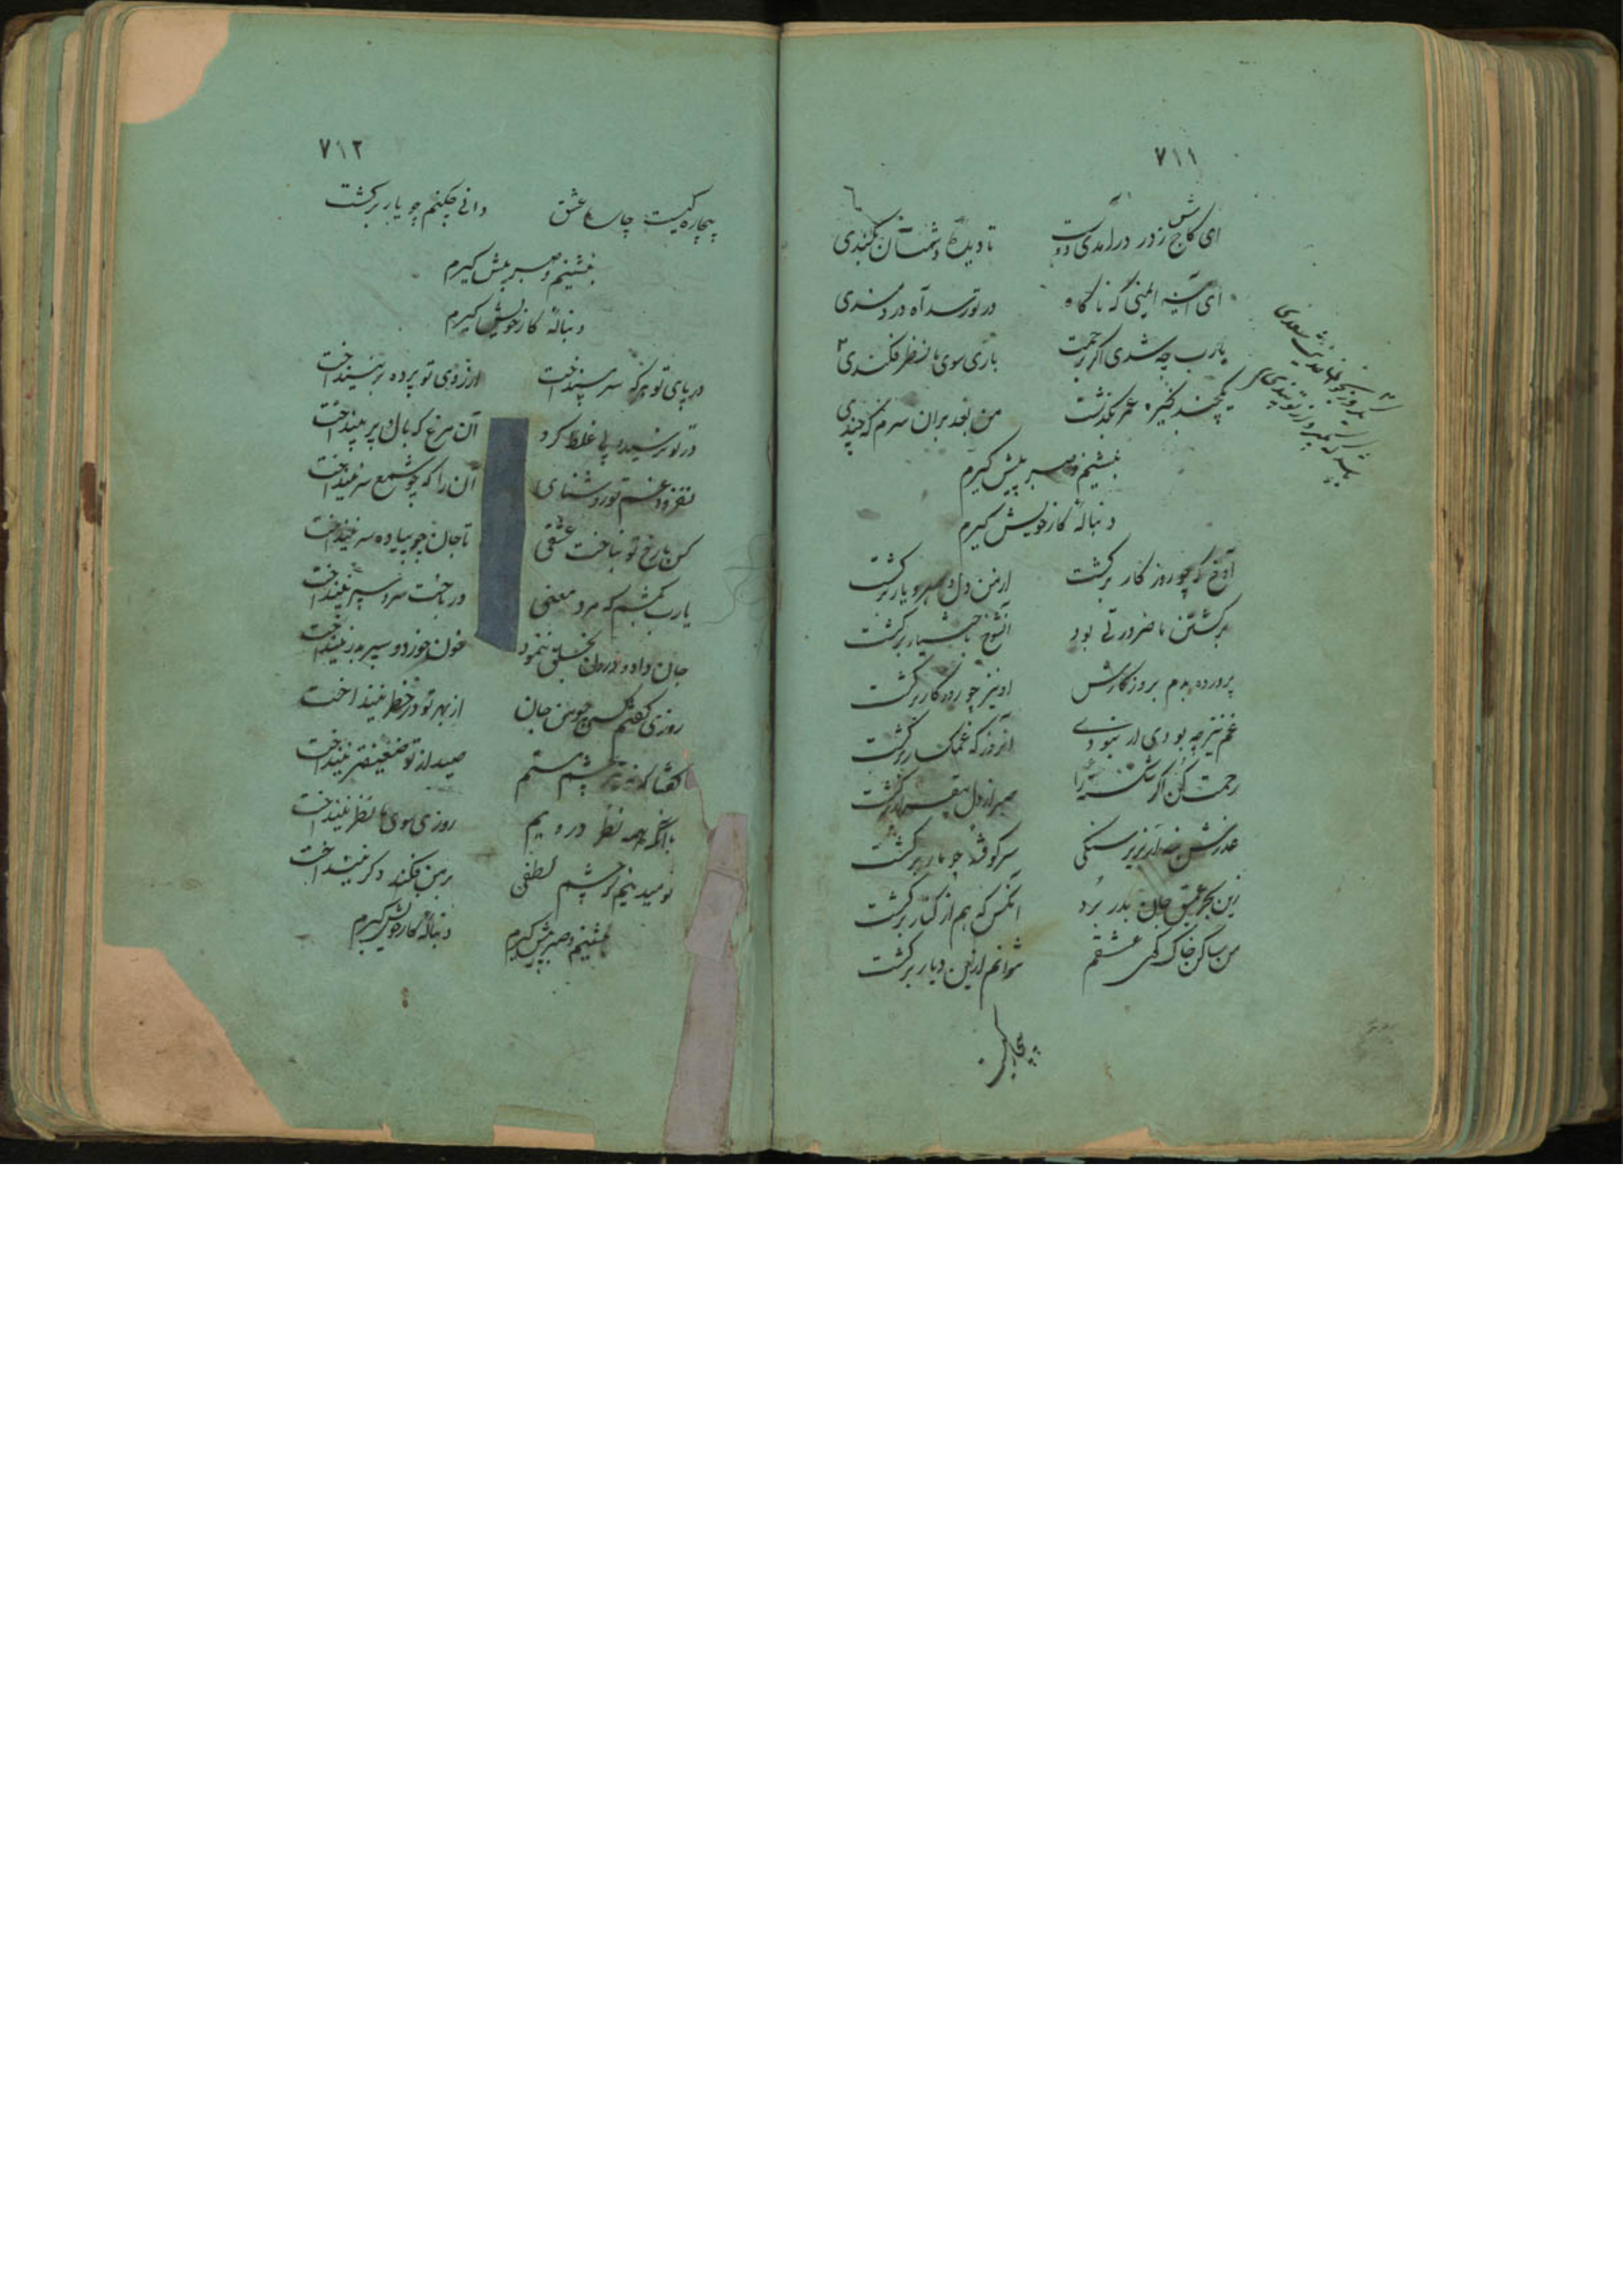 ۷۱۱
ای کاج ز در درآمدی دوست تا دیده دشمنان بکندی
ش
ای آینه ایمنی که ناگاه در تو رسد آه دردمندی
یارب چه شدی اگر برحمت باری سوی ما نظر فکندی
یکچند بخیره عمر بگذشت من بعد بران سرم که چندی
بنشینم و صبر پیش گیرم
دنباله کار خویش گیرم
آوخ که چو روزگار برگشت از من دل و صبر و یار برگشت
برگشتن ما ضرورتی بود آن شوخ باختیار برگشت
پرورده بدم بروزگارش او نیز چو روزگار برگشت
غم نیز چه بودی ار نبودی آنروز که غمگسار برگشت
رحمت کن اگر شکسته را صبر از دل بیقرار برگشت
عذرش بنه ار بزیر سنگی سرکوفته چو مار برگشت
زین بحر عمیق جان بدر برد آنکس که هم از کنار برگشت
من ساکن خاک کوی عشقم نتوانم ازین دیار برگشت
بیچاره
۷۱۲
بیچارگیست چاره عشق دانی چکنم چو یار برگشت
بنشینم و صبر پیش گیرم
دنباله کار خویش گیرم
در پای تو هرکه سر نینداخت از روی تو پرده بر نینداخت
در تو نرسید و پی غلط کرد آن مرغ که بال و پر نینداخت
نفزود غم تو روشنایی آن را که چو شمع سر نینداخت
کس با رخ تو نباخت عشقی تا جان چو پیاده سر نینداخت
یارب کشتم که مرد معنی در باخت سر و سپر نینداخت
جان داد و درون بخلق ننمود خون خورد و سپر بدر نینداخت
روزی گفتم کسی چو من جان از بهر تو در خطر نینداخت
گفتا که نه تیر چشم مستم صید از تو ضعیفتر نینداخت
با آنکه همه نظر در ویم روزی سوی ما نظر نینداخت
نومید نیم که چشم لطفی بر من فکند و گر نینداخت
بنشینم و صبر پیش گیرم دنباله کار خویش گیرم